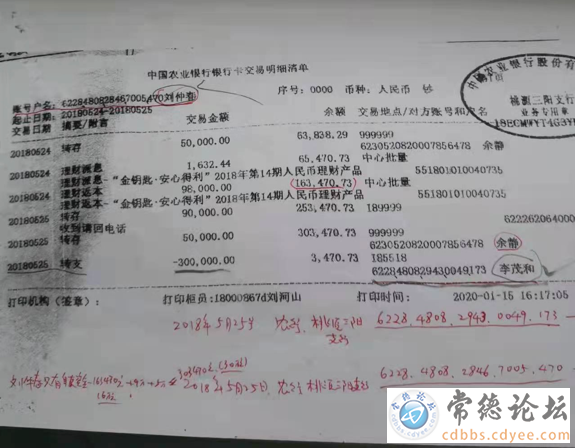 中国农业银行银行卡交易明细清单
账号户名:6228480828467005470刘仲春 序号:0000 币种:人民币 钞
起止日期:20180524-20180525
交易日期 摘要/附言 交易金额 余额 交易地点/对方账号和户名
20180524 转存 50,000.00 63,838.29 999999
6230520820007856478 余静
20180524 理财派息 1,632.44 65,470.73 中心批量
理财派息-“金钥匙·安心得利”2018年第14期人民币理财产品 551801010040735
20180524 理财返本 98,000.00 163,470.73 中心批量
理财返本-“金钥匙·安心得利”2018年第14期人民币理财产品 551801010040735
20180525 转存 90,000.00 253,470.73 189999
收到请回电话 6222262064000
20180525 转存 50,000.00 303,470.73 999999
6230520820007856478 余静
20180525 转支 -300,000.00 3,470.73 185518
6228480829430049173 李茂和
打印机构(签章): 打印柜员:18000867d刘河山 打印时间: 2020-01-15 16:17:05
中国农业银行股份有
桃源三阳支行
业务专用章
2018年5月25号 农行 桃源三阳支行 6228.4808.2943.0049.173
2018年5月25日 农行 6228.4808.2846.7005.470
常德论坛
cdbbs.cdyee.com